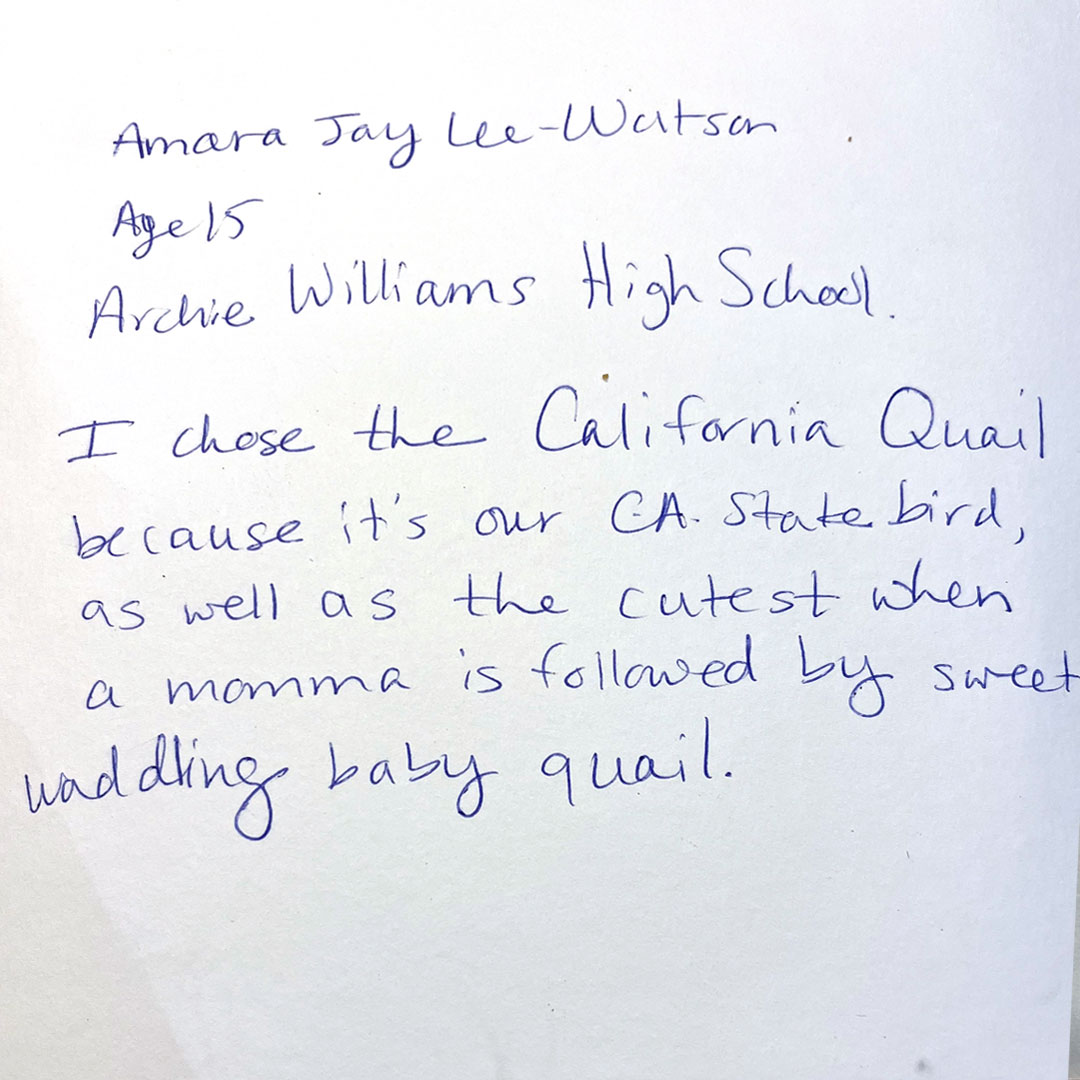 Amara Jay Lee-Watson
Age 15
Archie Williams High School.
I chose the California Quail
because it's our CA. State bird,
as well as the cutest when
a momma is followed by sweet
waddling baby quail.